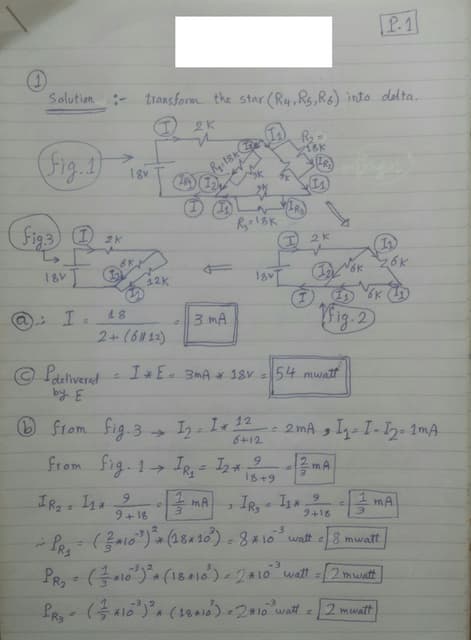 P.1
①
Solution :- transform the star (R4, R5, R6) into delta.
Fig.1
I 2K I1 R2 = 18K
18V R1=18K 9K 9K IR2
IR1 I2 9K I1
I I1 R3=18K IR3
Fig.3 I 2K
18V 6K 12K
I2 I1
I 2K I1
18V I2 6K 6K
I I1 6K I1
fig.2
ⓐ ∴ I = 18 / 2+(6//12) = 3 mA
ⓒ Pdelivered by E = I*E = 3mA * 18V = 54 mwatt
ⓑ from fig.3 → I2 = I* 12/6+12 = 2mA , I1 = I-I2 = 1mA
from fig.1 → IR1 = I2* 9/18+9 = 2/3 mA
IR2 = I1* 9/9+18 = 1/3 mA , IR3 = I1* 9/9+18 = 1/3 mA
∴ PR1 = (2/3*10⁻³)² * (18*10³) = 8*10⁻³ watt = 8 mwatt
PR2 = (1/3*10⁻³)² * (18*10³) = 2*10⁻³ watt = 2 mwatt
PR3 = (1/3*10⁻³)² * (18*10³) = 2*10⁻³ watt = 2 mwatt